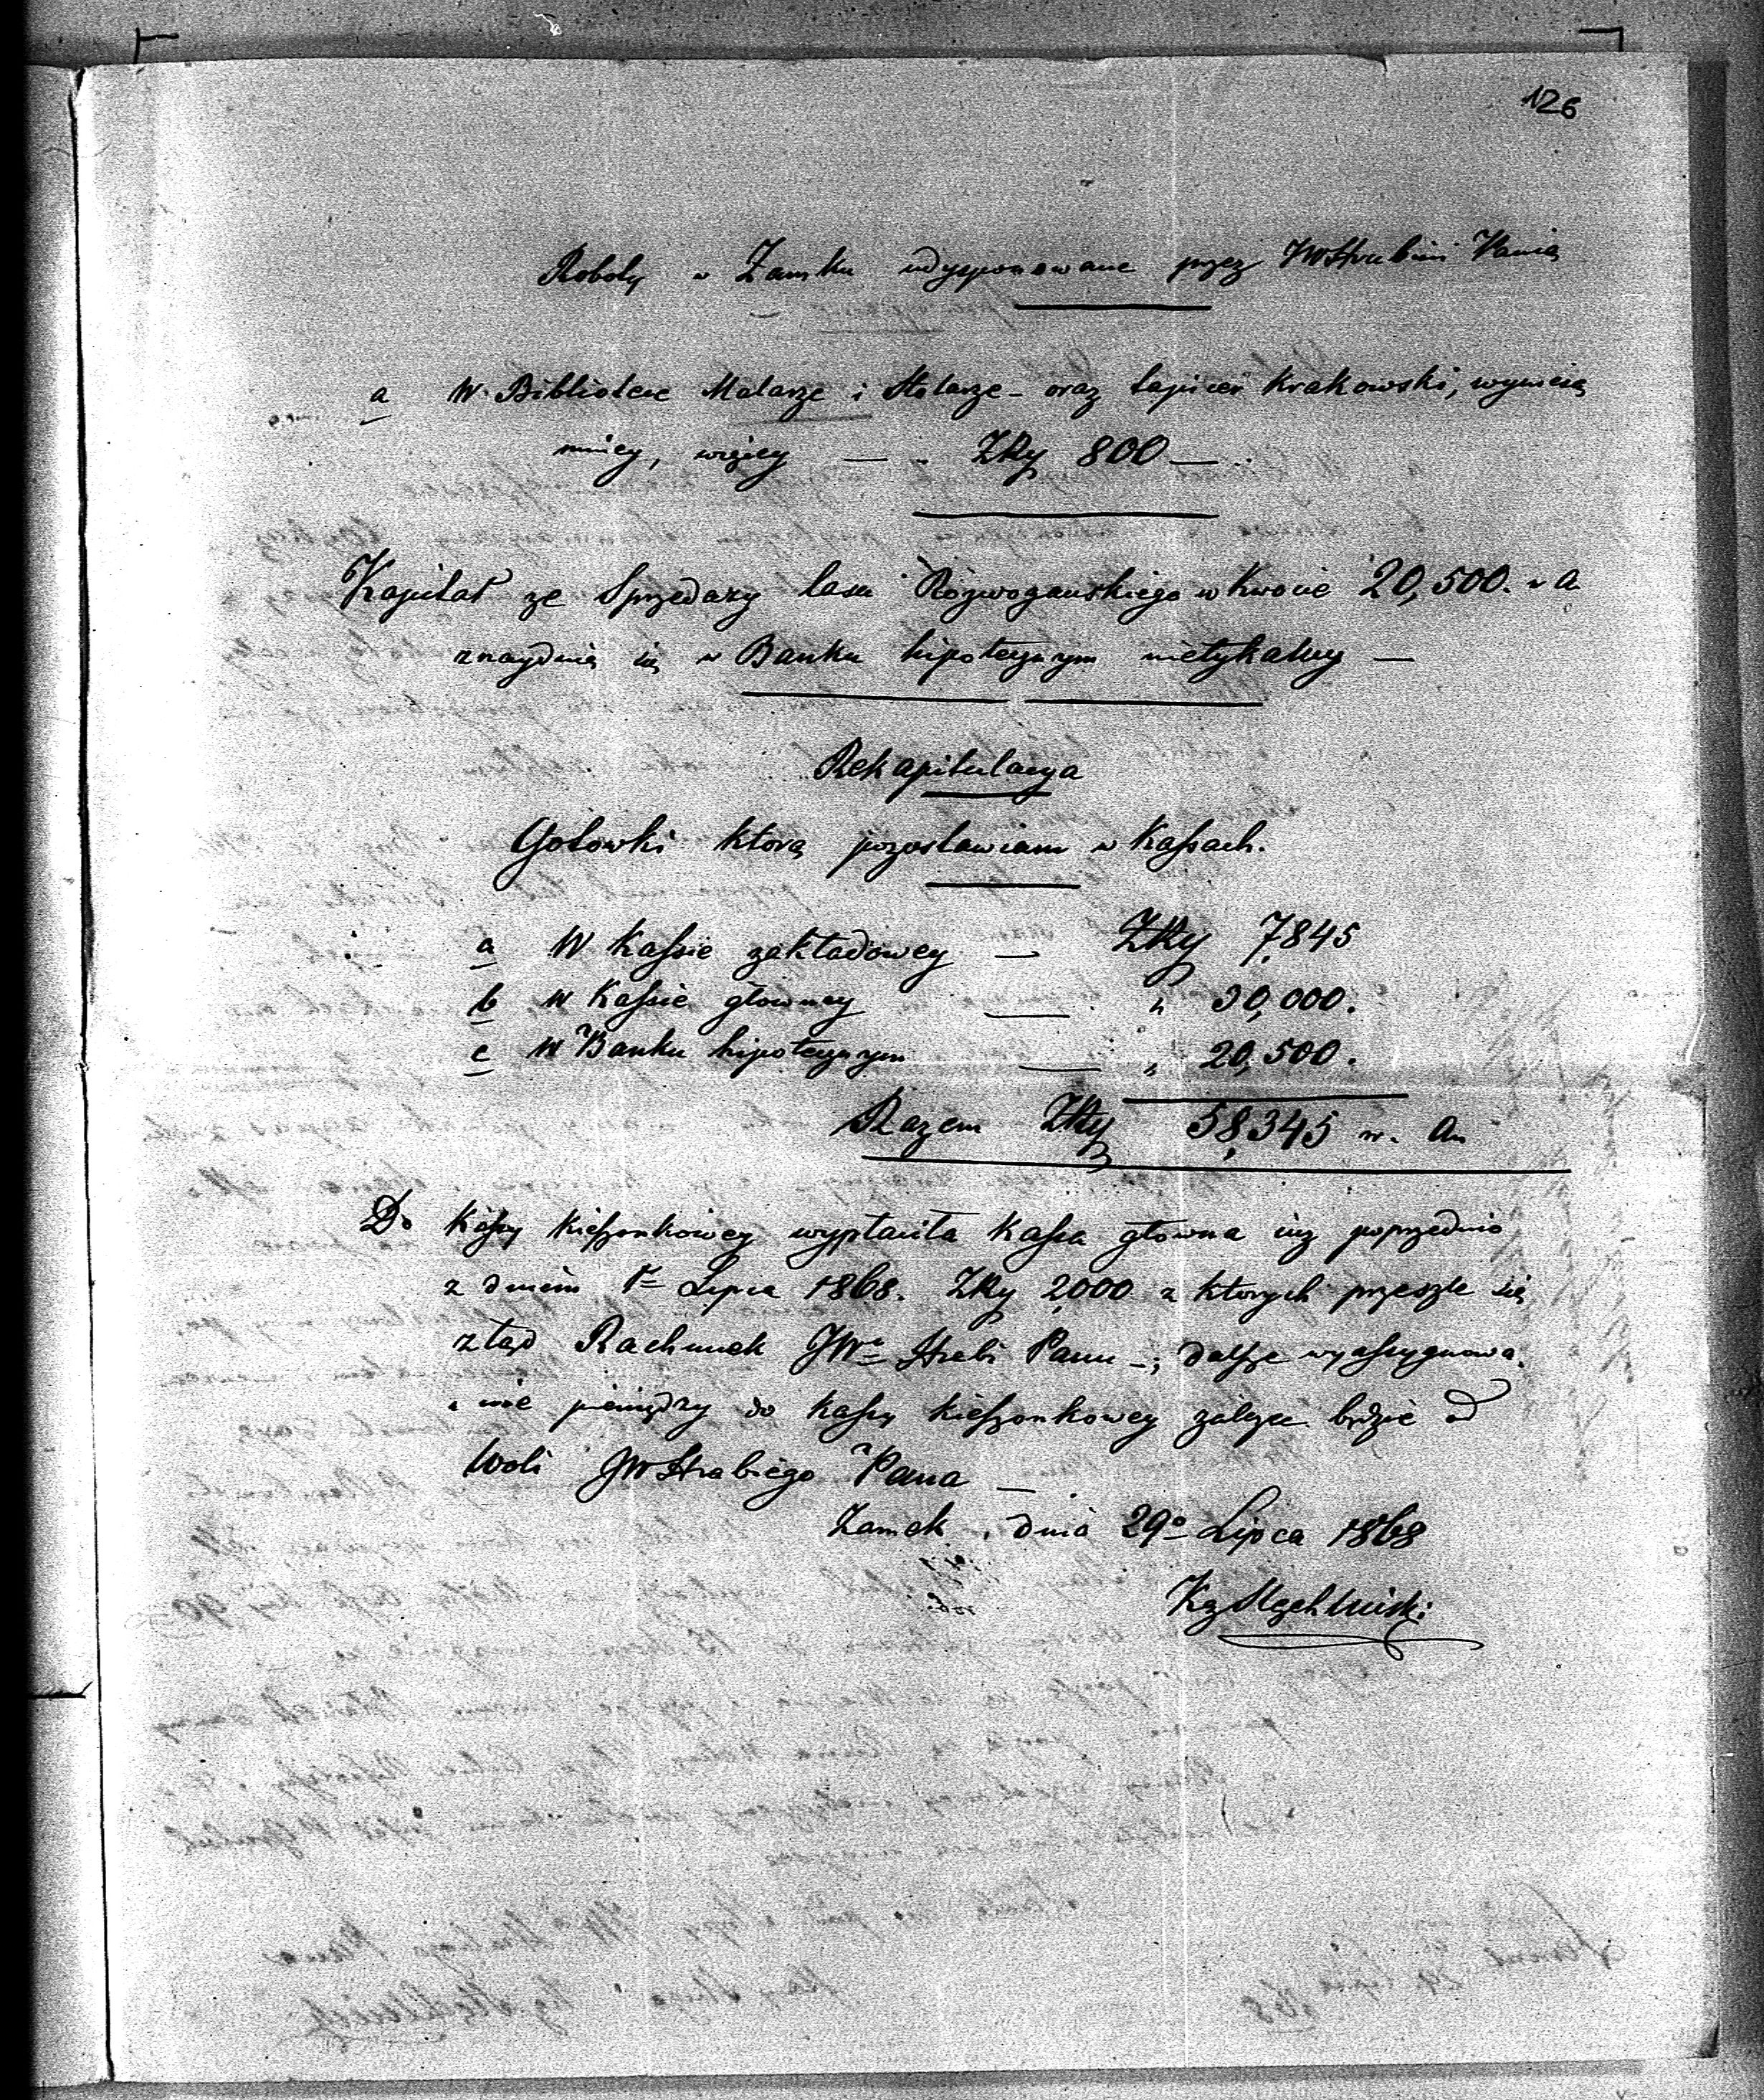 126
Roboty w Zamku udysponowane przez JWHrabinę Panią
a W Bibliotece Malarze i Stolarze – oraz tapicer Krakowski, wyniosą
mniey, więcey — " ZRy 800 —
Kapitał ze Sprzedazy lasu Rozwogańskiego w Kwocie 20,500. w A
znayduie się w Banku hipotecznym nietykalny —
Rekapitulacya
Gotowki ktorą pozostawiam w Kassach.
a W Kassie zakładowey — ZRy 7,845
b w Kassie głowney — " 30,000.
c W Banku hipotecznym — " 20,500.
Razem ZRy 58,345 w. A
Do Kassy Kieszonkowey wypłaciła Kassa głowna iuz poprzednio
z dniem 1 Lipca 1868. ZRy 2,000 z ktorych przeszle się
ztąd Rachunek JW Hrabi Panu –; dalsze wyassygnowa
nie pieniędzy do Kassy Kieszonkowey zalezec będzie od
Woli JWHrabiego Pana —
Zamek dnia 29o Lipca 1868